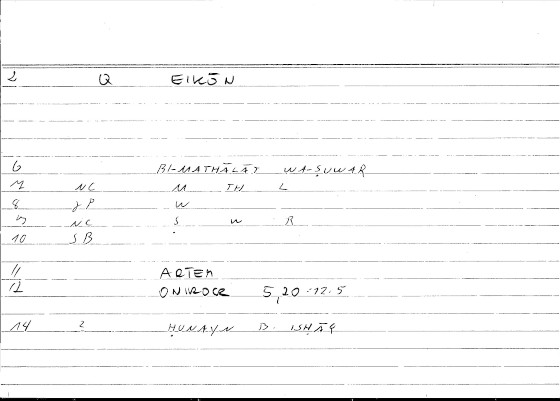 2 Q EIKŌN
6 BI-MATHĀLĀT WA-ṢUWAR
7 NC M TH L
8 JP W
9 NC Ṣ W R
10 SB
11 ARTEM
12 ONIROCR 5,20-12.5
14 2 ḤUNAYN B. ISḤĀQ